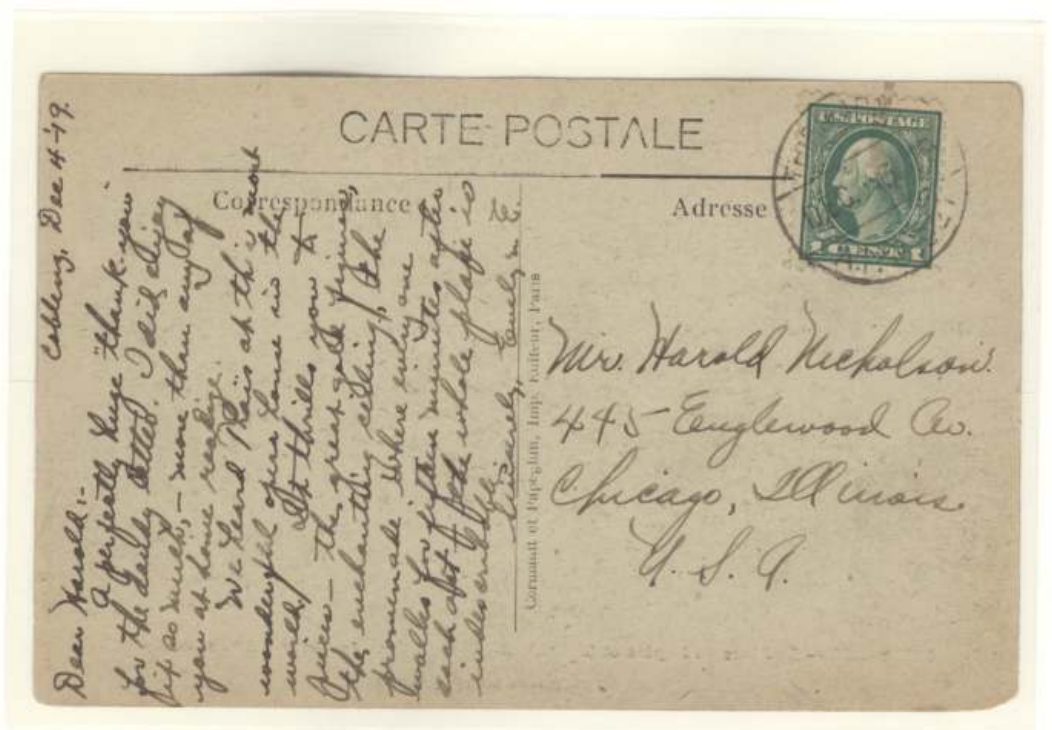 CARTE POSTALE
Correspondance
Adresse
U.S. POSTAGE
1 CENT 1
Coblenz, Dec 4-19.
Dear Harold:-
A perfectly huge "thank-you"
for the daily Letted. I did enjoy
it so much, - more than any of
you at home realize.
We heard Thais at the most
wonderful opera house in the
world! It thrills you to
pieces - the great gold figures,
the enchanting ceiling, the
promenade where everyone
walks for fifteen minutes after
each act & the whole place is
indescribable.
Sincerely, Emily M. E.
Cormault et Papeghin, Imp. Editeur, Paris
Mr. Harold Nicholson.
445 - Englewood Av.
Chicago, Illinois.
U. S. A.